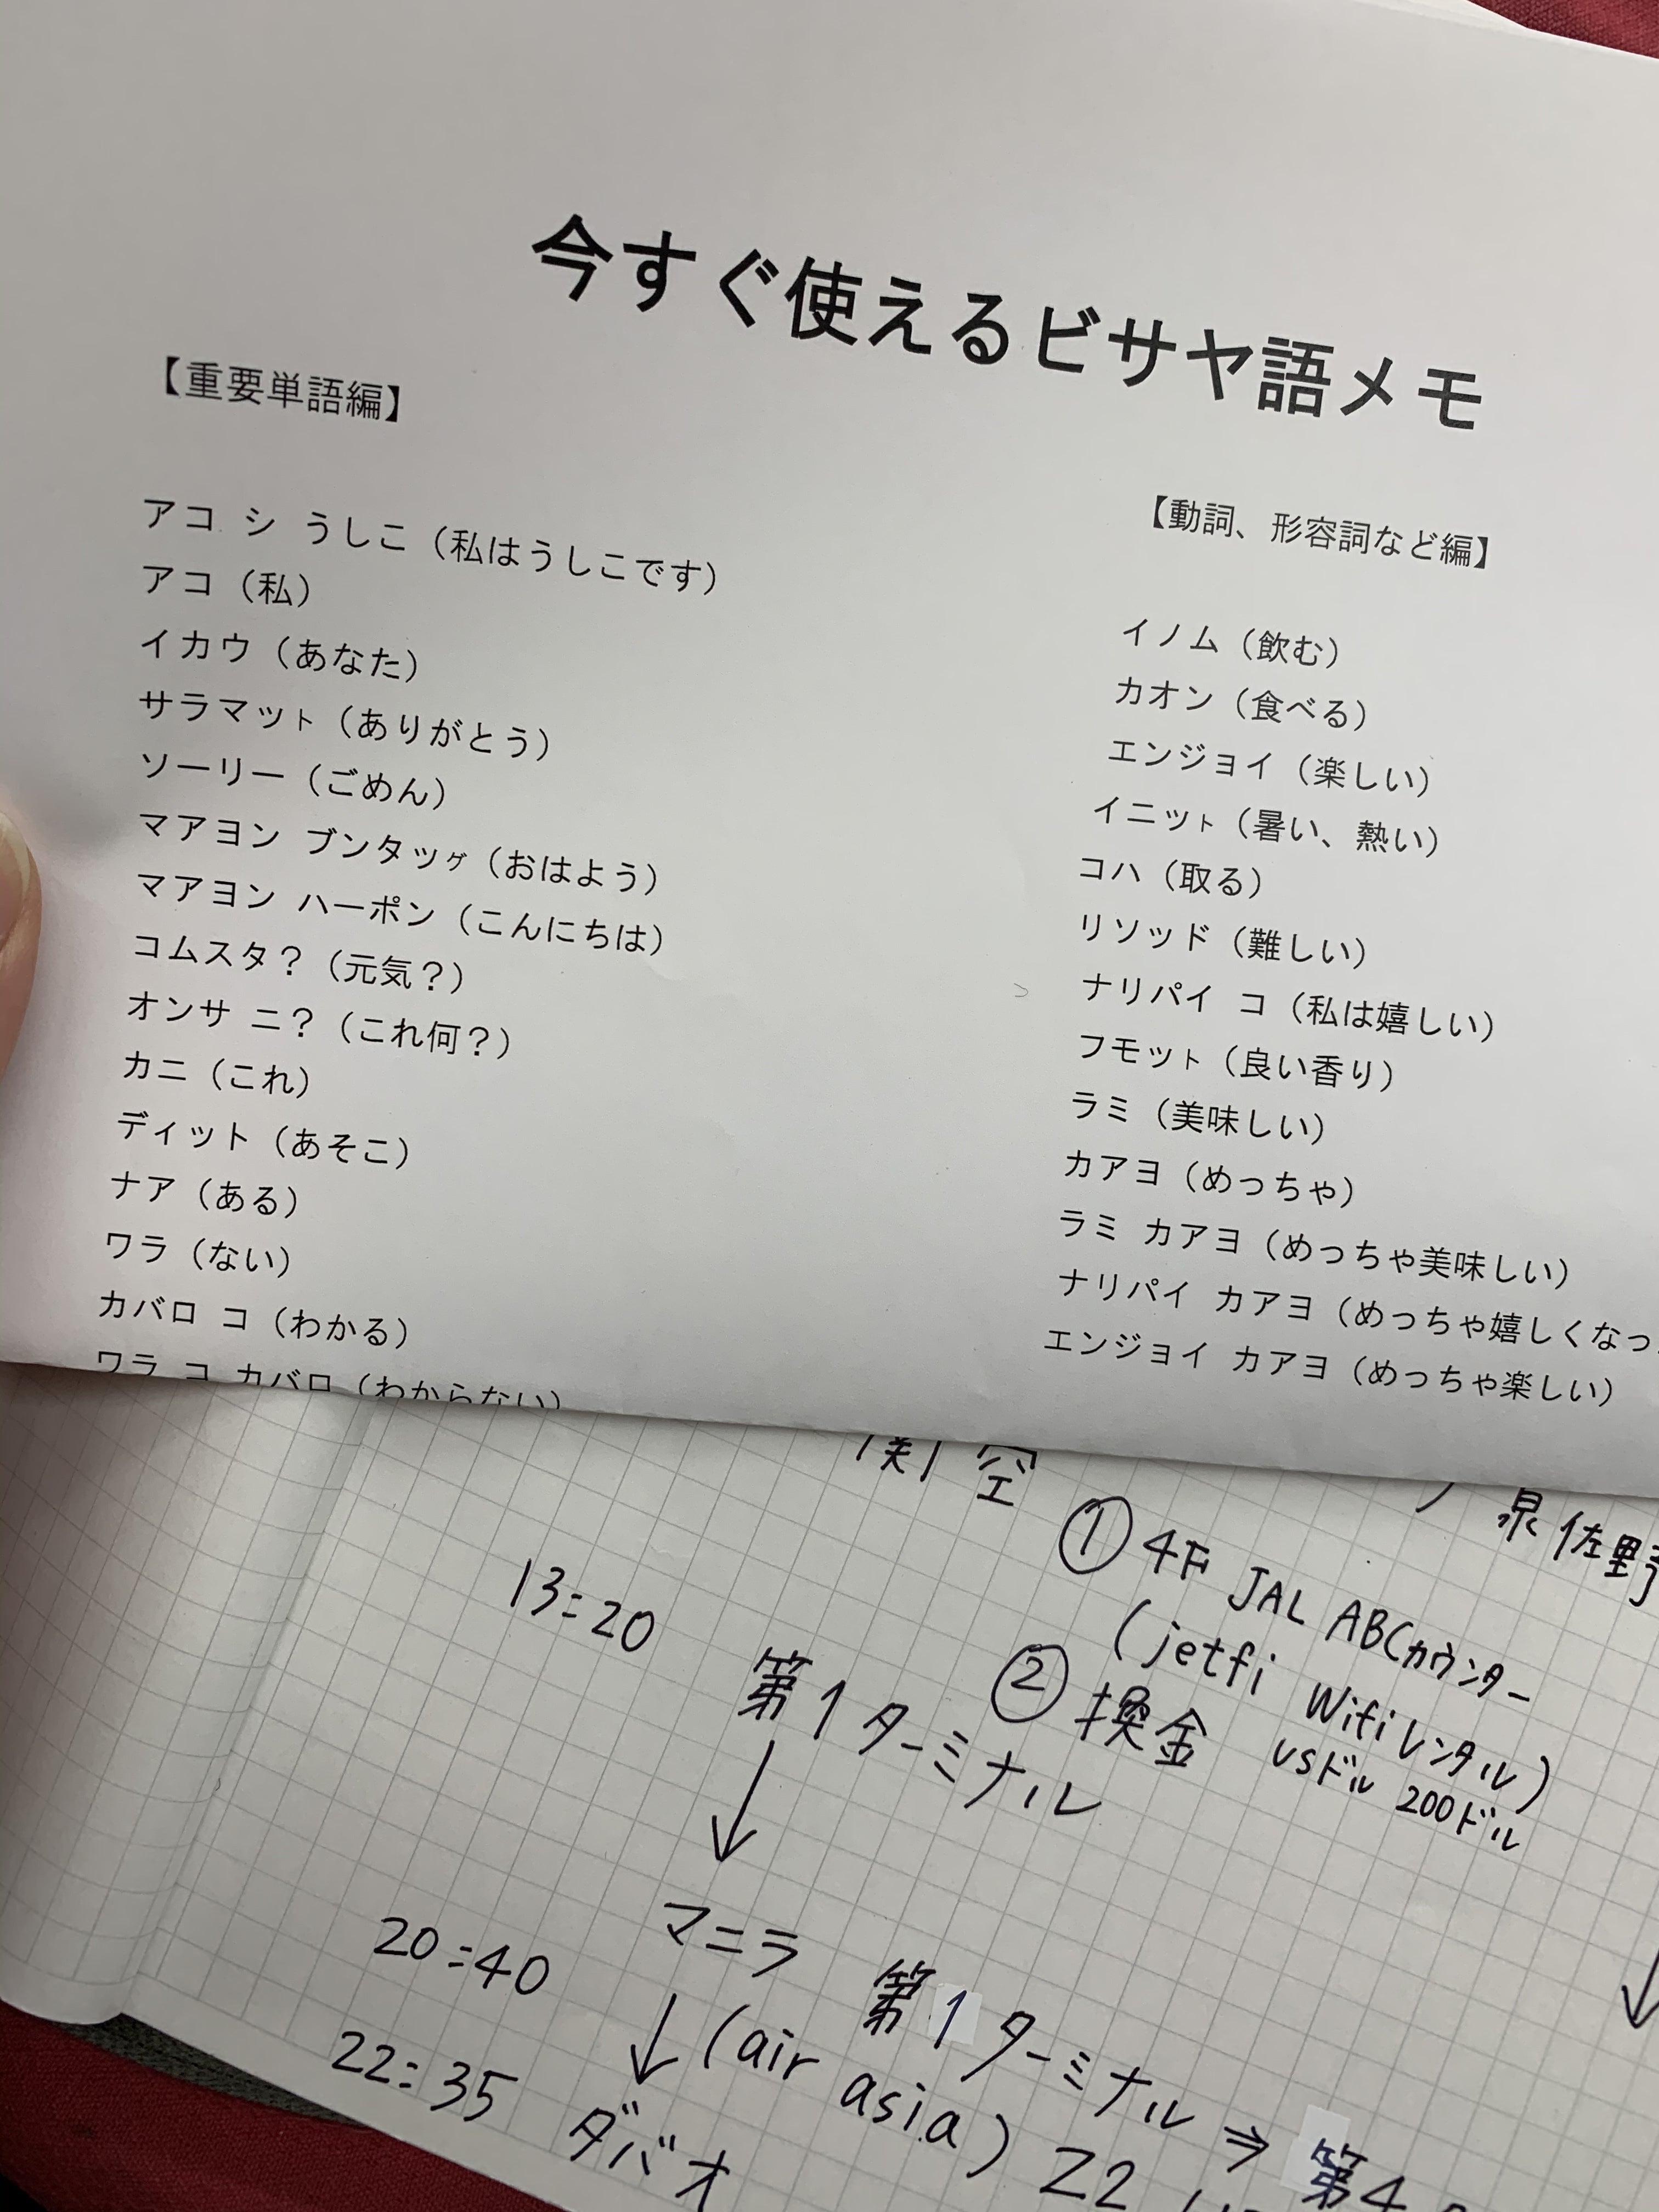 今すぐ使えるビサヤ語メモ
【重要単語編】
アコ シ うしこ（私はうしこです）
アコ（私）
イカウ（あなた）
サラマット（ありがとう）
ソーリー（ごめん）
マアヨン ブンタッグ（おはよう）
マアヨン ハーポン（こんにちは）
コムスタ？（元気？）
オンサ ニ？（これ何？）
カニ（これ）
ディット（あそこ）
ナア（ある）
ワラ（ない）
カバロ コ（わかる）
ワラ コ カバロ（わからない）
【動詞、形容詞など編】
イノム（飲む）
カオン（食べる）
エンジョイ（楽しい）
イニット（暑い、熱い）
コハ（取る）
リソッド（難しい）
ナリパイ コ（私は嬉しい）
フモット（良い香り）
ラミ（美味しい）
カアヨ（めっちゃ）
ラミ カアヨ（めっちゃ美味しい）
ナリパイ カアヨ（めっちゃ嬉しくなっ
エンジョイ カアヨ（めっちゃ楽しい）
関空
泉佐野
① 4F JAL ABCカウンター
(jetfi Wifiレンタル)
② 換金 USドル 200ドル
13:20
第1ターミナル
↓
20:40 マニラ 第1ターミナル ⇒ 第4
↓ (air asia) Z2
22:35 ダバオ